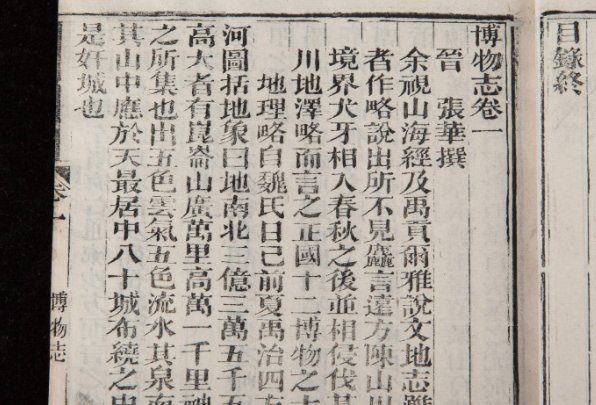 目錄終
博物志卷一
晉　張華撰
余視山海經及禹貢爾雅說文地志雖
者作略說出所不見麤言遠方陳山川
境界犬牙相入春秋之後並相侵伐其
川地澤略而言之正國十二博物之士
地理略自魏氏曰已前夏禹治四方
河圖括地象曰地南北三億三萬五千五
高大者有崑崙山廣萬里高萬一千里神
之所集也出五色雲氣五色流水其泉南
其山中應於天最居中八十城布繞之中
是好城也
卷一
博物志